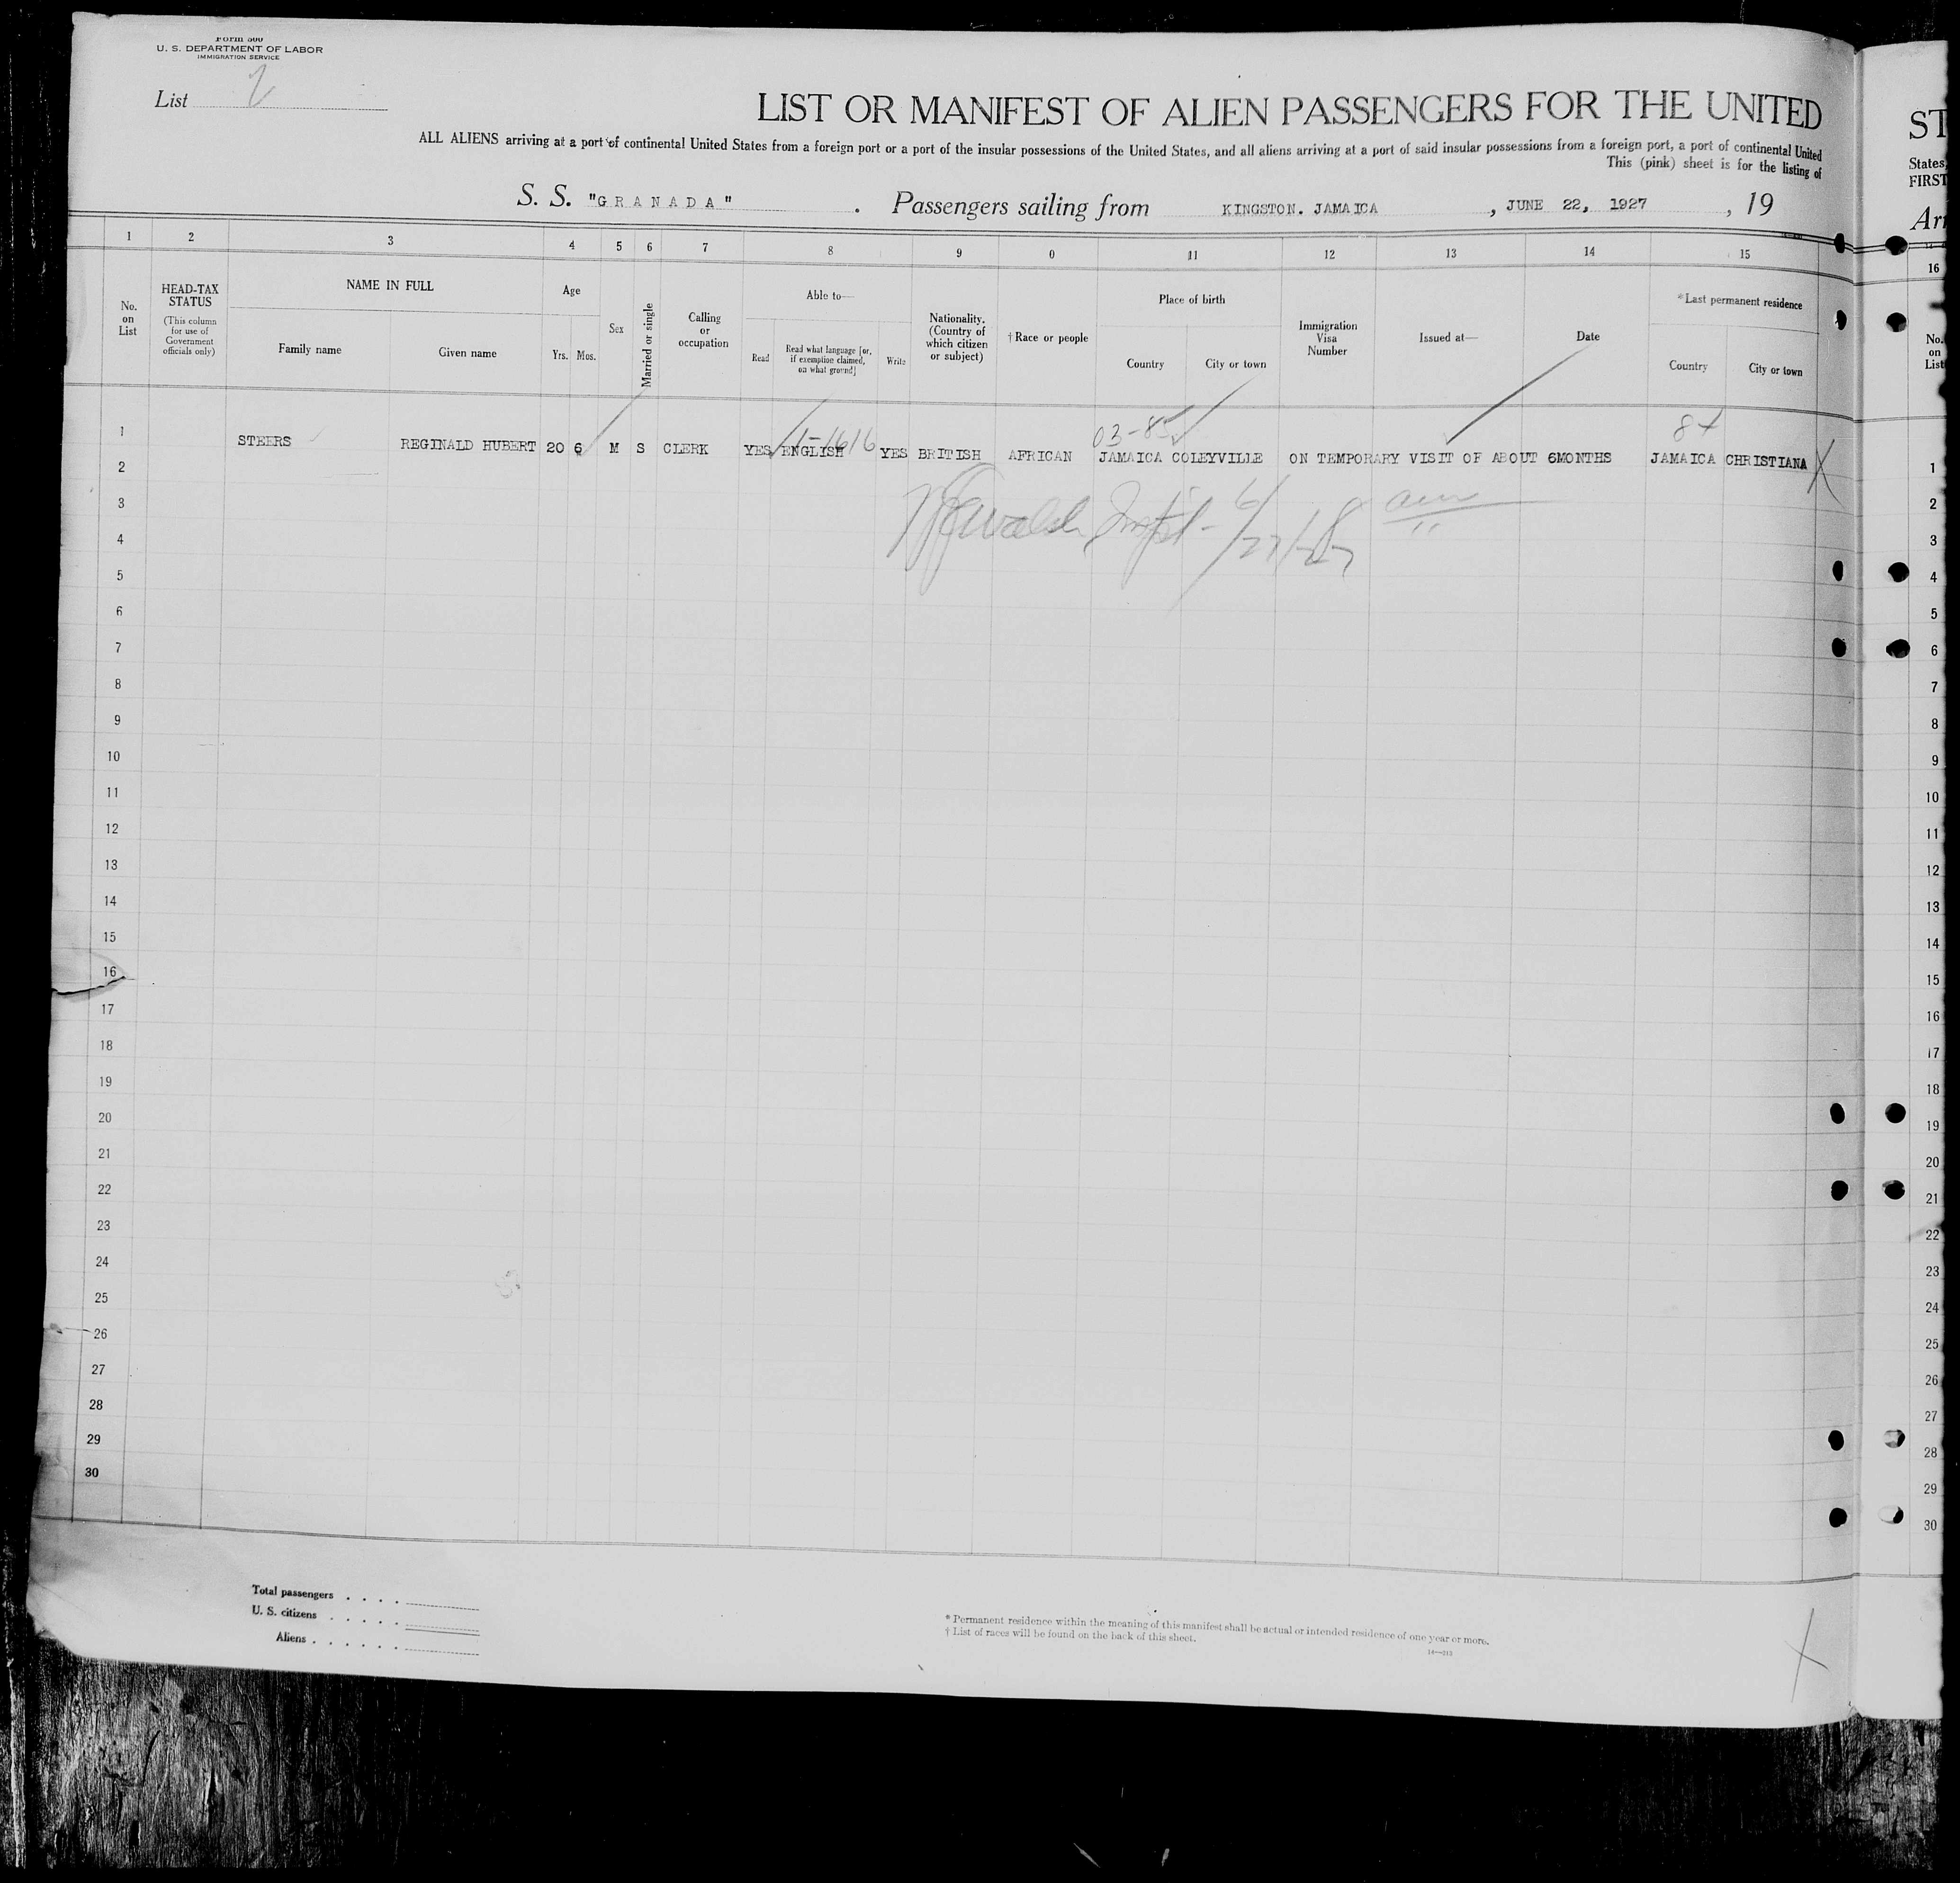 Form 500
U. S. DEPARTMENT OF LABOR
IMMIGRATION SERVICE
List 2
LIST OR MANIFEST OF ALIEN PASSENGERS FOR THE UNITED
ST
ALL ALIENS arriving at a port of continental United States from a foreign port or a port of the insular possessions of the United States, and all aliens arriving at a port of said insular possessions from a foreign port, a port of continental United
States,
This (pink) sheet is for the listing of
FIRST
S. S. "GRANADA" . Passengers sailing from KINGSTON. JAMAICA , JUNE 22, 1927 , 19
Arr
1 2 3 4 5 6 7 8 9 0 11 12 13 14 15
16
No. on List
HEAD-TAX STATUS
(This column for use of Government officials only)
NAME IN FULL
Family name
Given name
Age
Yrs. Mos.
Sex
Married or single
Calling or occupation
Able to—
Read
Read what language [or, if exemption claimed, on what ground]
Write
Nationality. (Country of which citizen or subject)
† Race or people
Place of birth
Country
City or town
Immigration Visa Number
Issued at—
Date
* Last permanent residence
Country
City or town
No. on List
03-85 84
1-1616
1 STEERS REGINALD HUBERT 20 6 M S CLERK YES ENGLISH YES BRITISH AFRICAN JAMAICA COLEYVILLE ON TEMPORARY VISIT OF ABOUT 6MONTHS JAMAICA CHRISTIANA X 1
2 2
3 3
4 4
5 5
6 6
7 7
8 8
9 9
10 10
11 11
12 12
13 13
14 14
15 15
16 16
17 17
18 18
19 19
20 20
21 21
22 22
23 23
24 24
25 25
26 26
27 27
28 28
29 29
30 30
Total passengers . . . .
U. S. citizens . . . . .
Aliens . . . . . .
* Permanent residence within the meaning of this manifest shall be actual or intended residence of one year or more.
† List of races will be found on the back of this sheet.
X